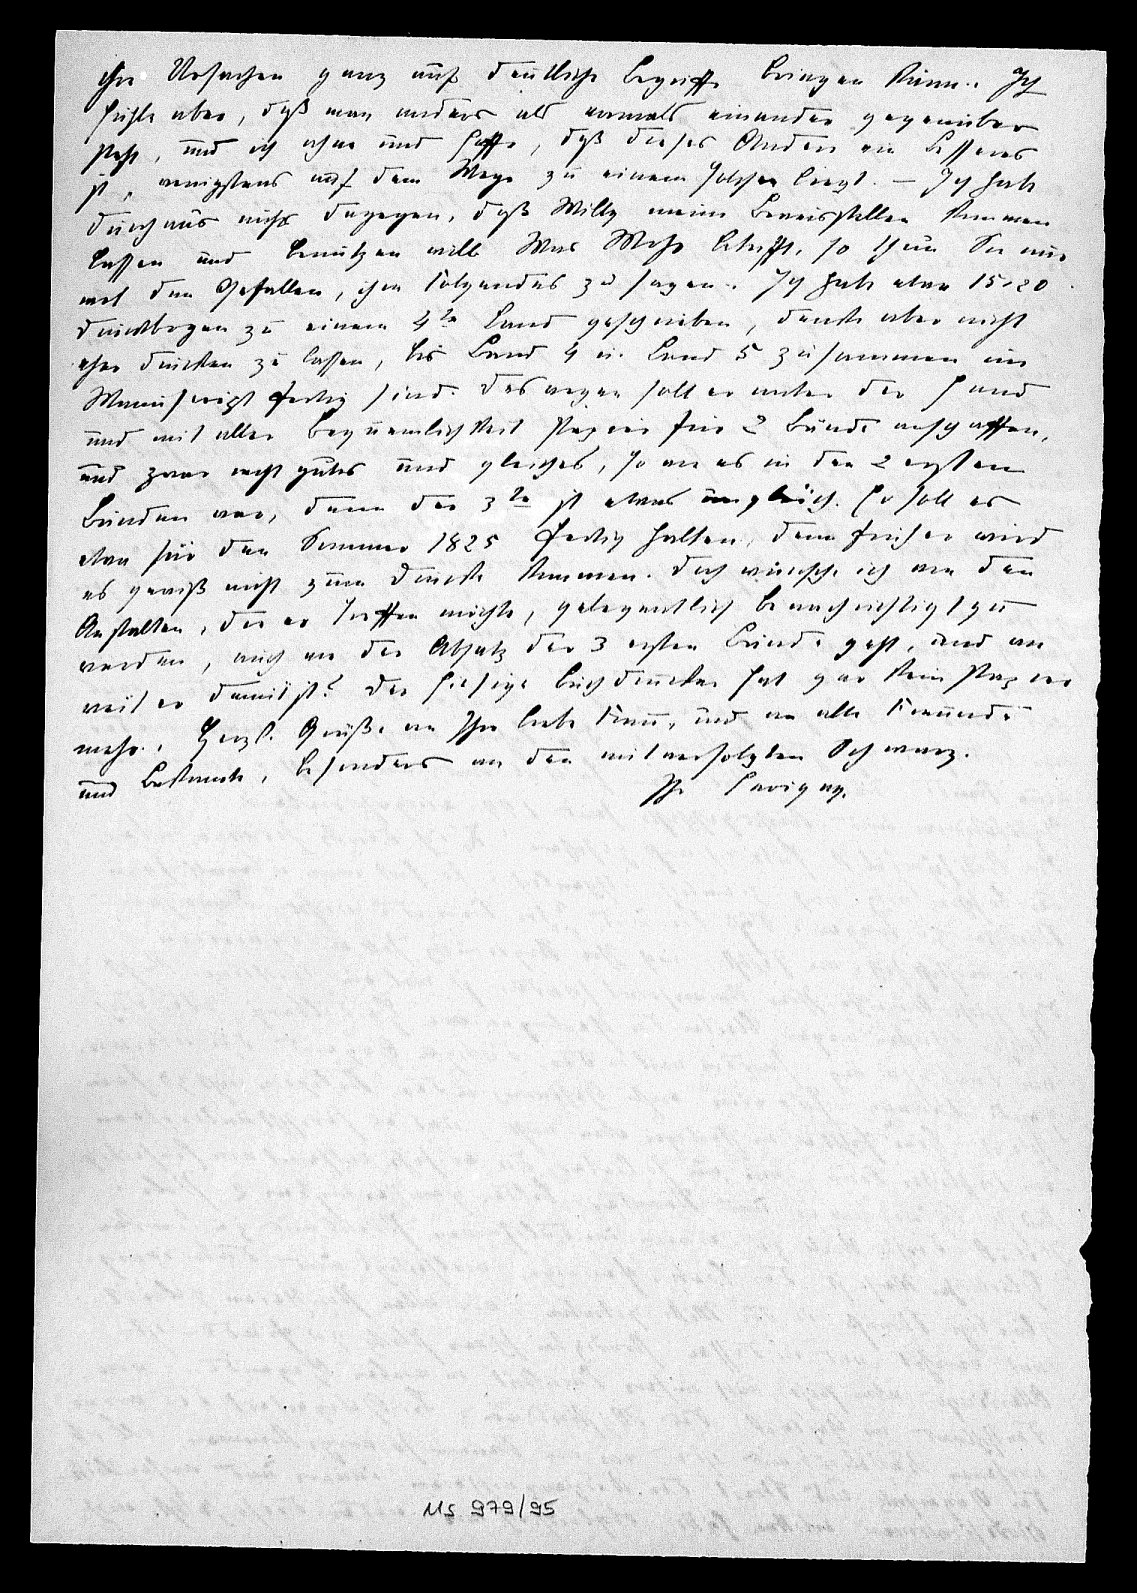 ihre Ursachen ganz auf deutliche Begriffe bringen kann. Ich
fühle aber, daß man anders als vormals einander gegenüber
steht, und ich ahne und hoffe, daß dieses Andere ein Besseres
ist, wenigstens auf dem Wege zu einem solchen liegt. – Ich habe
durchaus nichts dagegen, daß Willy meine Beweisstellen kommen
lassen und benutzen will. Was Mohr betrifft, so thun Sie mir
wol den Gefallen, ihm folgendes zu sagen. Ich habe etwa 15-20
Druckbogen zu einem 4te Band geschrieben, denke aber nicht
eher drucken zu lassen, bis Band 4 u. Band 5 zusammen im
Manuscript fertig sind. Deswegen soll er unter der Hand
und mit aller Bequemlichkeit Papier für 2 Bände anschaffen,
und zwar recht gutes und gleiches, so wie es in den 2 ersten
Bänden war, denn der 3te ist etwas ungleich. Er soll es
etwa für den Sommer 1825 fertig halten, denn früher wird
es gewiß nicht zum Drucke kommen. Doch wünsche ich von den
Anstalten, die er treffen möchte, gelegentlich benachrichtigt zu
werden, auch wie der Absatz der 3 ersten Bände geht, und wie
weit er damit ist? Der hiesige Buchdrucker hat gar kein Papier
mehr. Herzl. Grüße an Ihre liebe Frau, und an alle Freunde
und Bekannte, besonders an den mitverfolgten Schwarz.
Ihr Savigny.
Ms 979/95